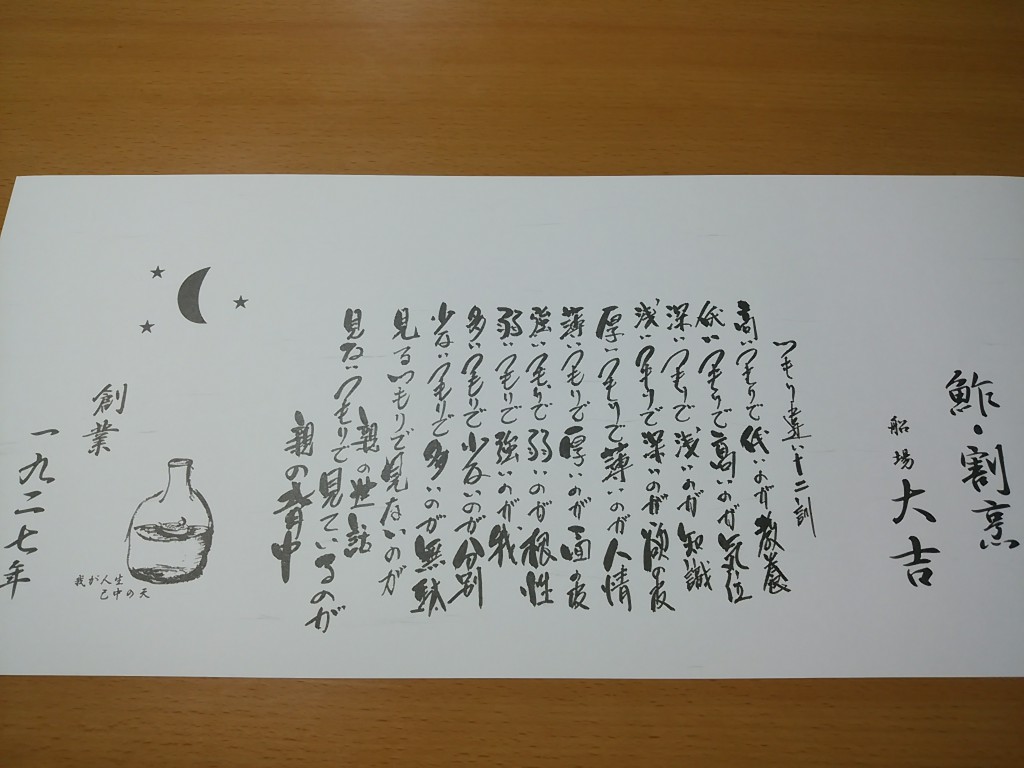 鮓・割烹
船場 大吉
つもり違い十二訓
高いつもりで低いのが教養
低いつもりで高いのが気位
深いつもりで浅いのが知識
浅いつもりで深いのが欲の皮
厚いつもりで薄いのが人情
薄いつもりで厚いのが面の皮
強いつもりで弱いのが根性
弱いつもりで強いのが我
多いつもりで少ないのが分別
少ないつもりで多いのが無駄
見るつもりで見ないのが
親の世話
見ないつもりで見ているのが
親の背中
創業
一九二七年
我が人生
己中の天